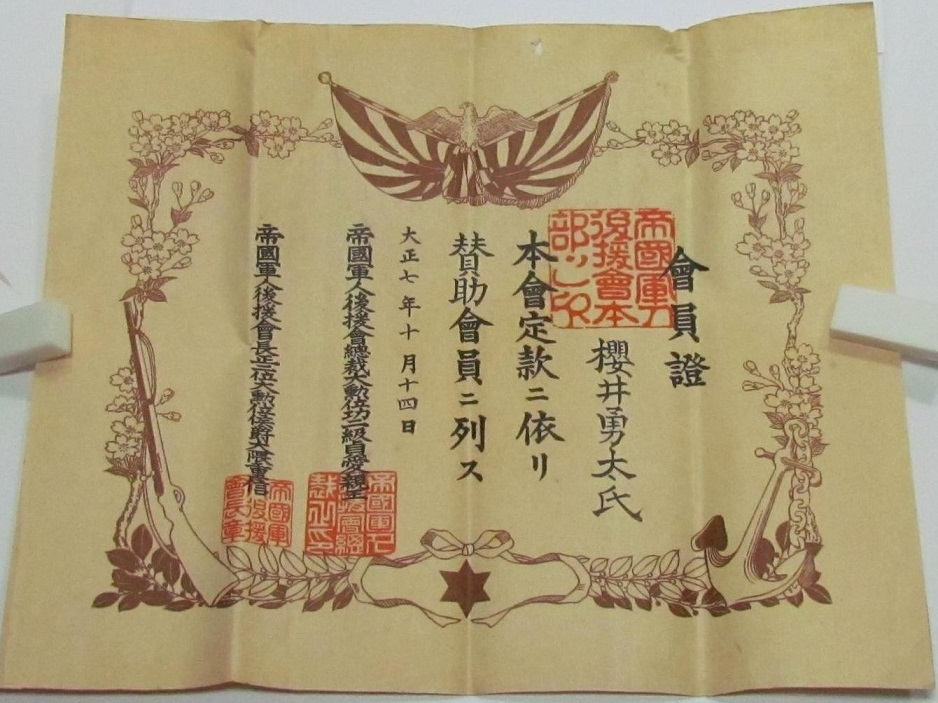 會員證
櫻井勇太氏
本會定款ニ依リ
賛助會員ニ列ス
大正七年十月十四日
帝國軍人後援會總裁大勲位功二級貞愛親王
帝國軍人後援會長正二位大勲位侯爵大隈重信
帝國軍人
後援會本
部之印
帝國軍人
後援會總
裁之印
帝國軍
人後援
會長章